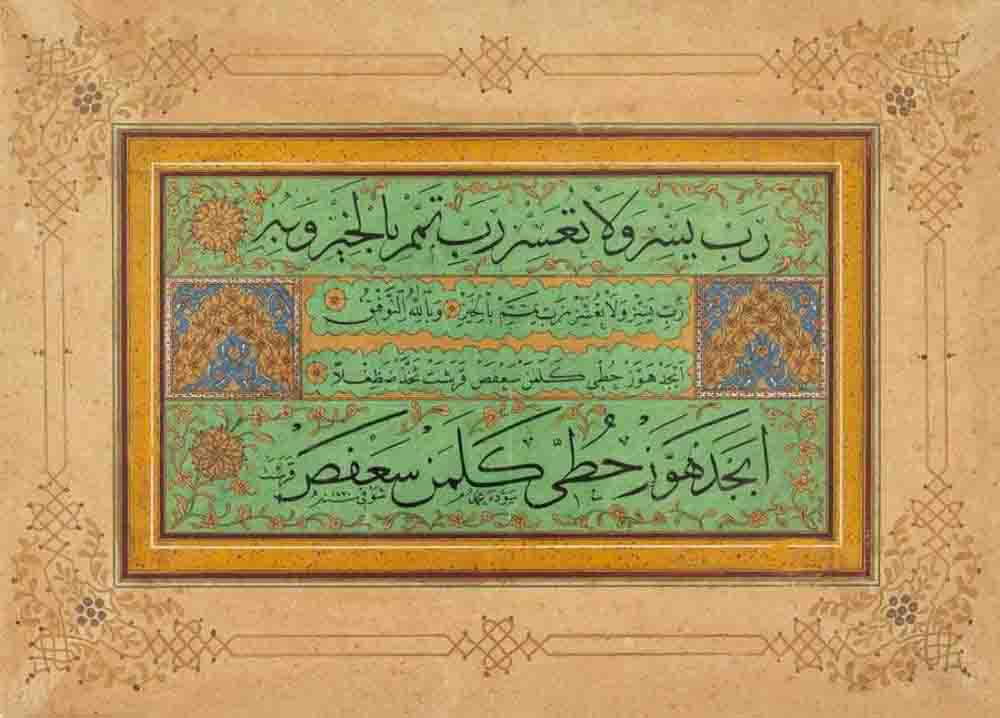 رَبِّ يَسِّرْ وَلَا تُعَسِّرْ رَبِّ تَمِّمْ بِالْخَيْرِ وَبِهِ
رَبِّ يَسِّرْ وَلَا تُعَسِّرْ رَبِّ تَمِّمْ بِالْخَيْرِ وَبِاللّٰهِ التَّوْفِيقُ
اَبْجَدْ هَوَّزْ حُطِّى كَلَمَنْ سَعْفَصْ قَرَشَتْ ثَخَّذْ ضَظَغْلَا
اَبْجَدْ هَوَّزْ حُطِّى كَلَمَنْ سَعْفَصْ قَرَشَتْ
سوده محمد شوقى سنه